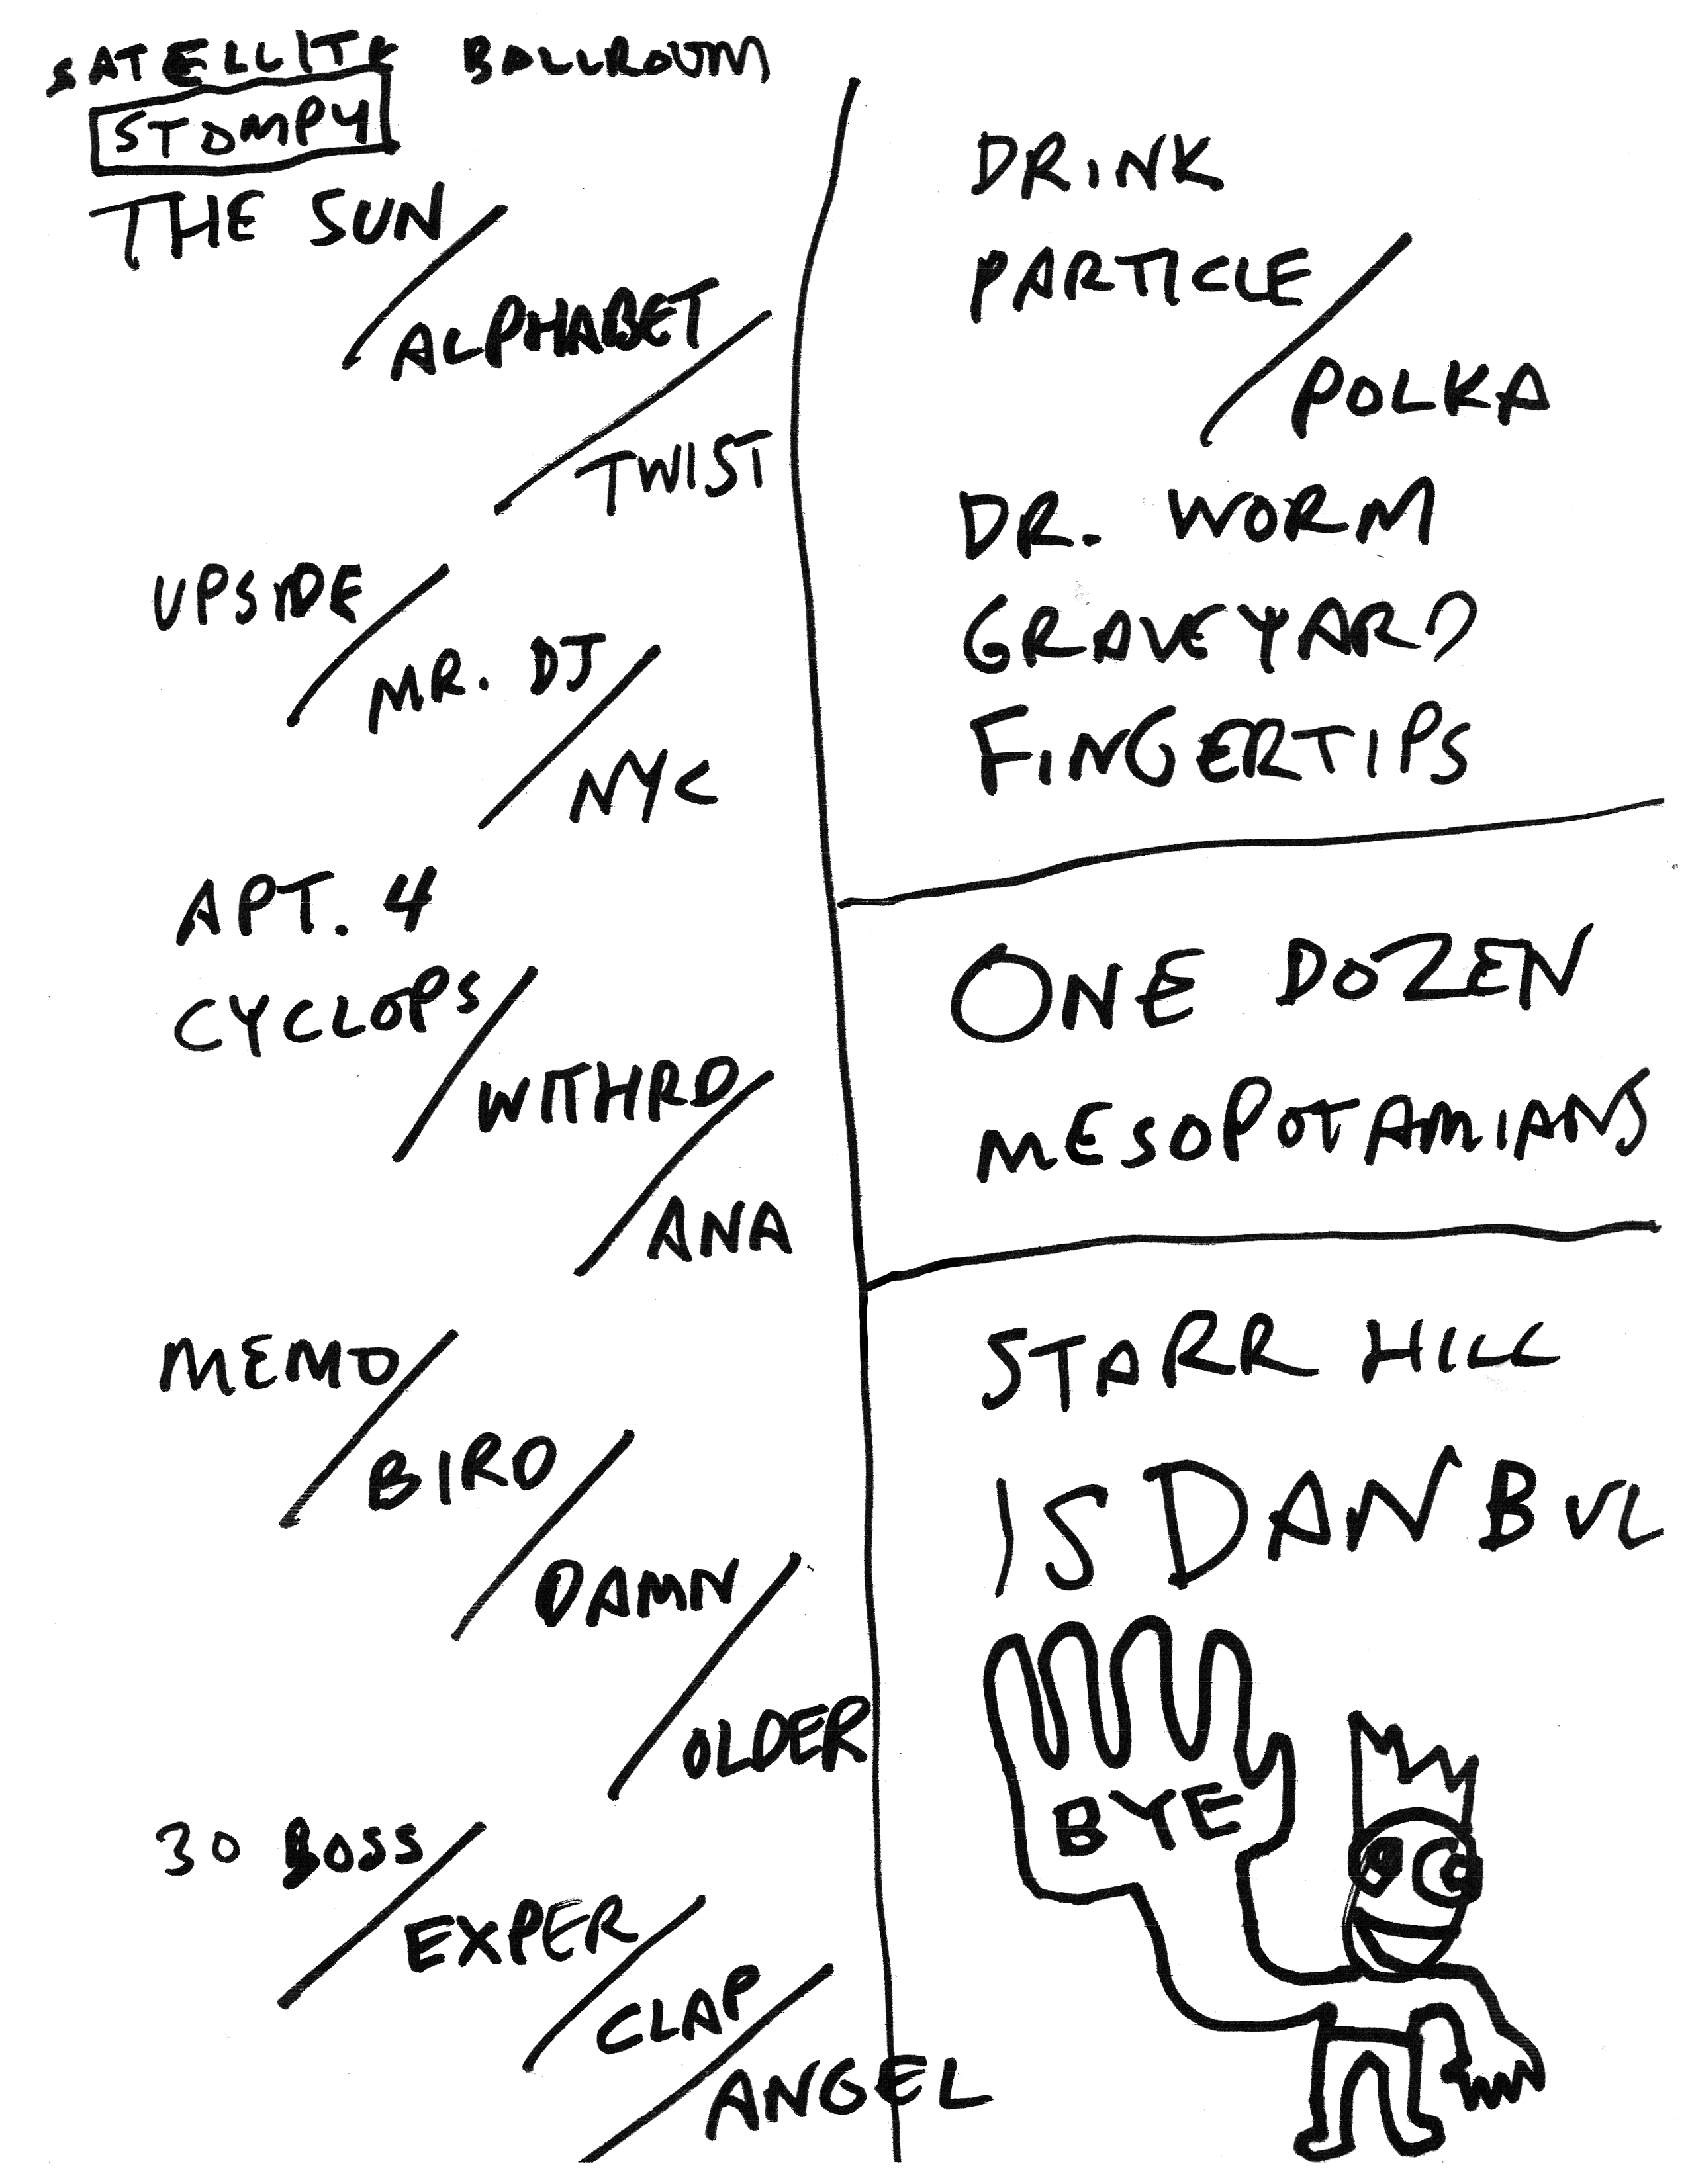 SATELLITE BALLROOM
STOMPY
THE SUN/
ALPHABET/
TWIST
UPSIDE/
MR. DJ/
NYC
APT. 4
CYCLOPS/
WITHRD/
ANA
MEMO/
BIRD/
DAMN/
OLDER
30 BOSS/
EXPER/
CLAP/
ANGEL
DRINK
PARTICLE/
POLKA
DR. WORM
GRAVEYARD
FINGERTIPS
ONE DOZEN
MESOPOTAMIANS
STARR HILL
IS DAN BUL
BYE